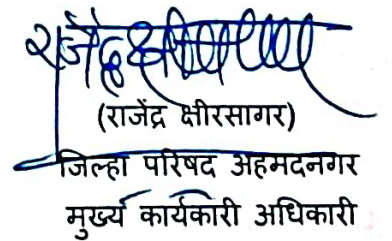 (राजेंद्र क्षीरसागर)
जिल्हा परिषद अहमदनगर
मुख्य कार्यकारी अधिकारी